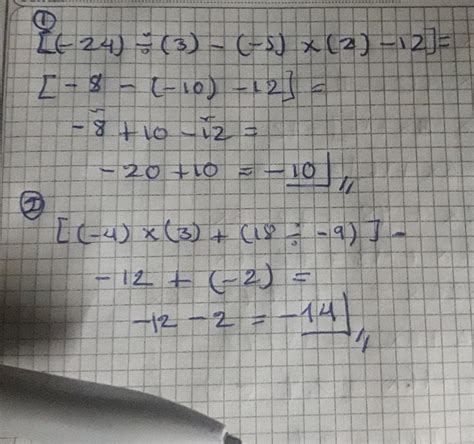 ①
[(-24) ÷ (3) - (-5) × (2) - 12] =
[-8 - (-10) - 12] =
-8 + 10 - 12 =
-20 + 10 = -10
②
[(-4) × (3) + (18 ÷ -9)] -
-12 + (-2) =
-12 - 2 = -14